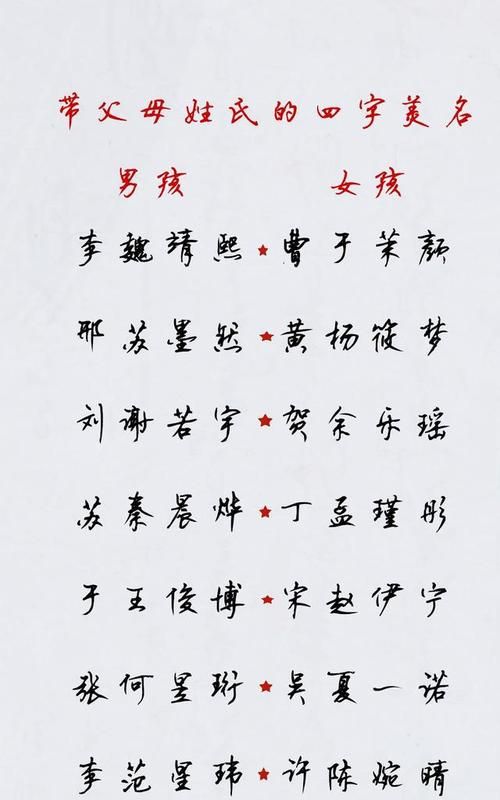 带父母姓氏的四字美名
男孩 女孩
李魏靖熙★曹于茉颜
邢苏墨然★黄杨筱梦
刘谢若宇★贺余乐瑶
苏秦晨烨★丁孟瑾彤
于王俊博★宋赵伊宁
张何昱珩★吴夏一诺
李范星玮★许陈婉晴